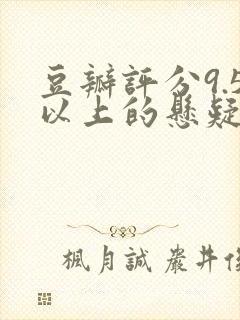 豆瓣評分9.5
以上的懸疑
楓月誠 嚴井俊